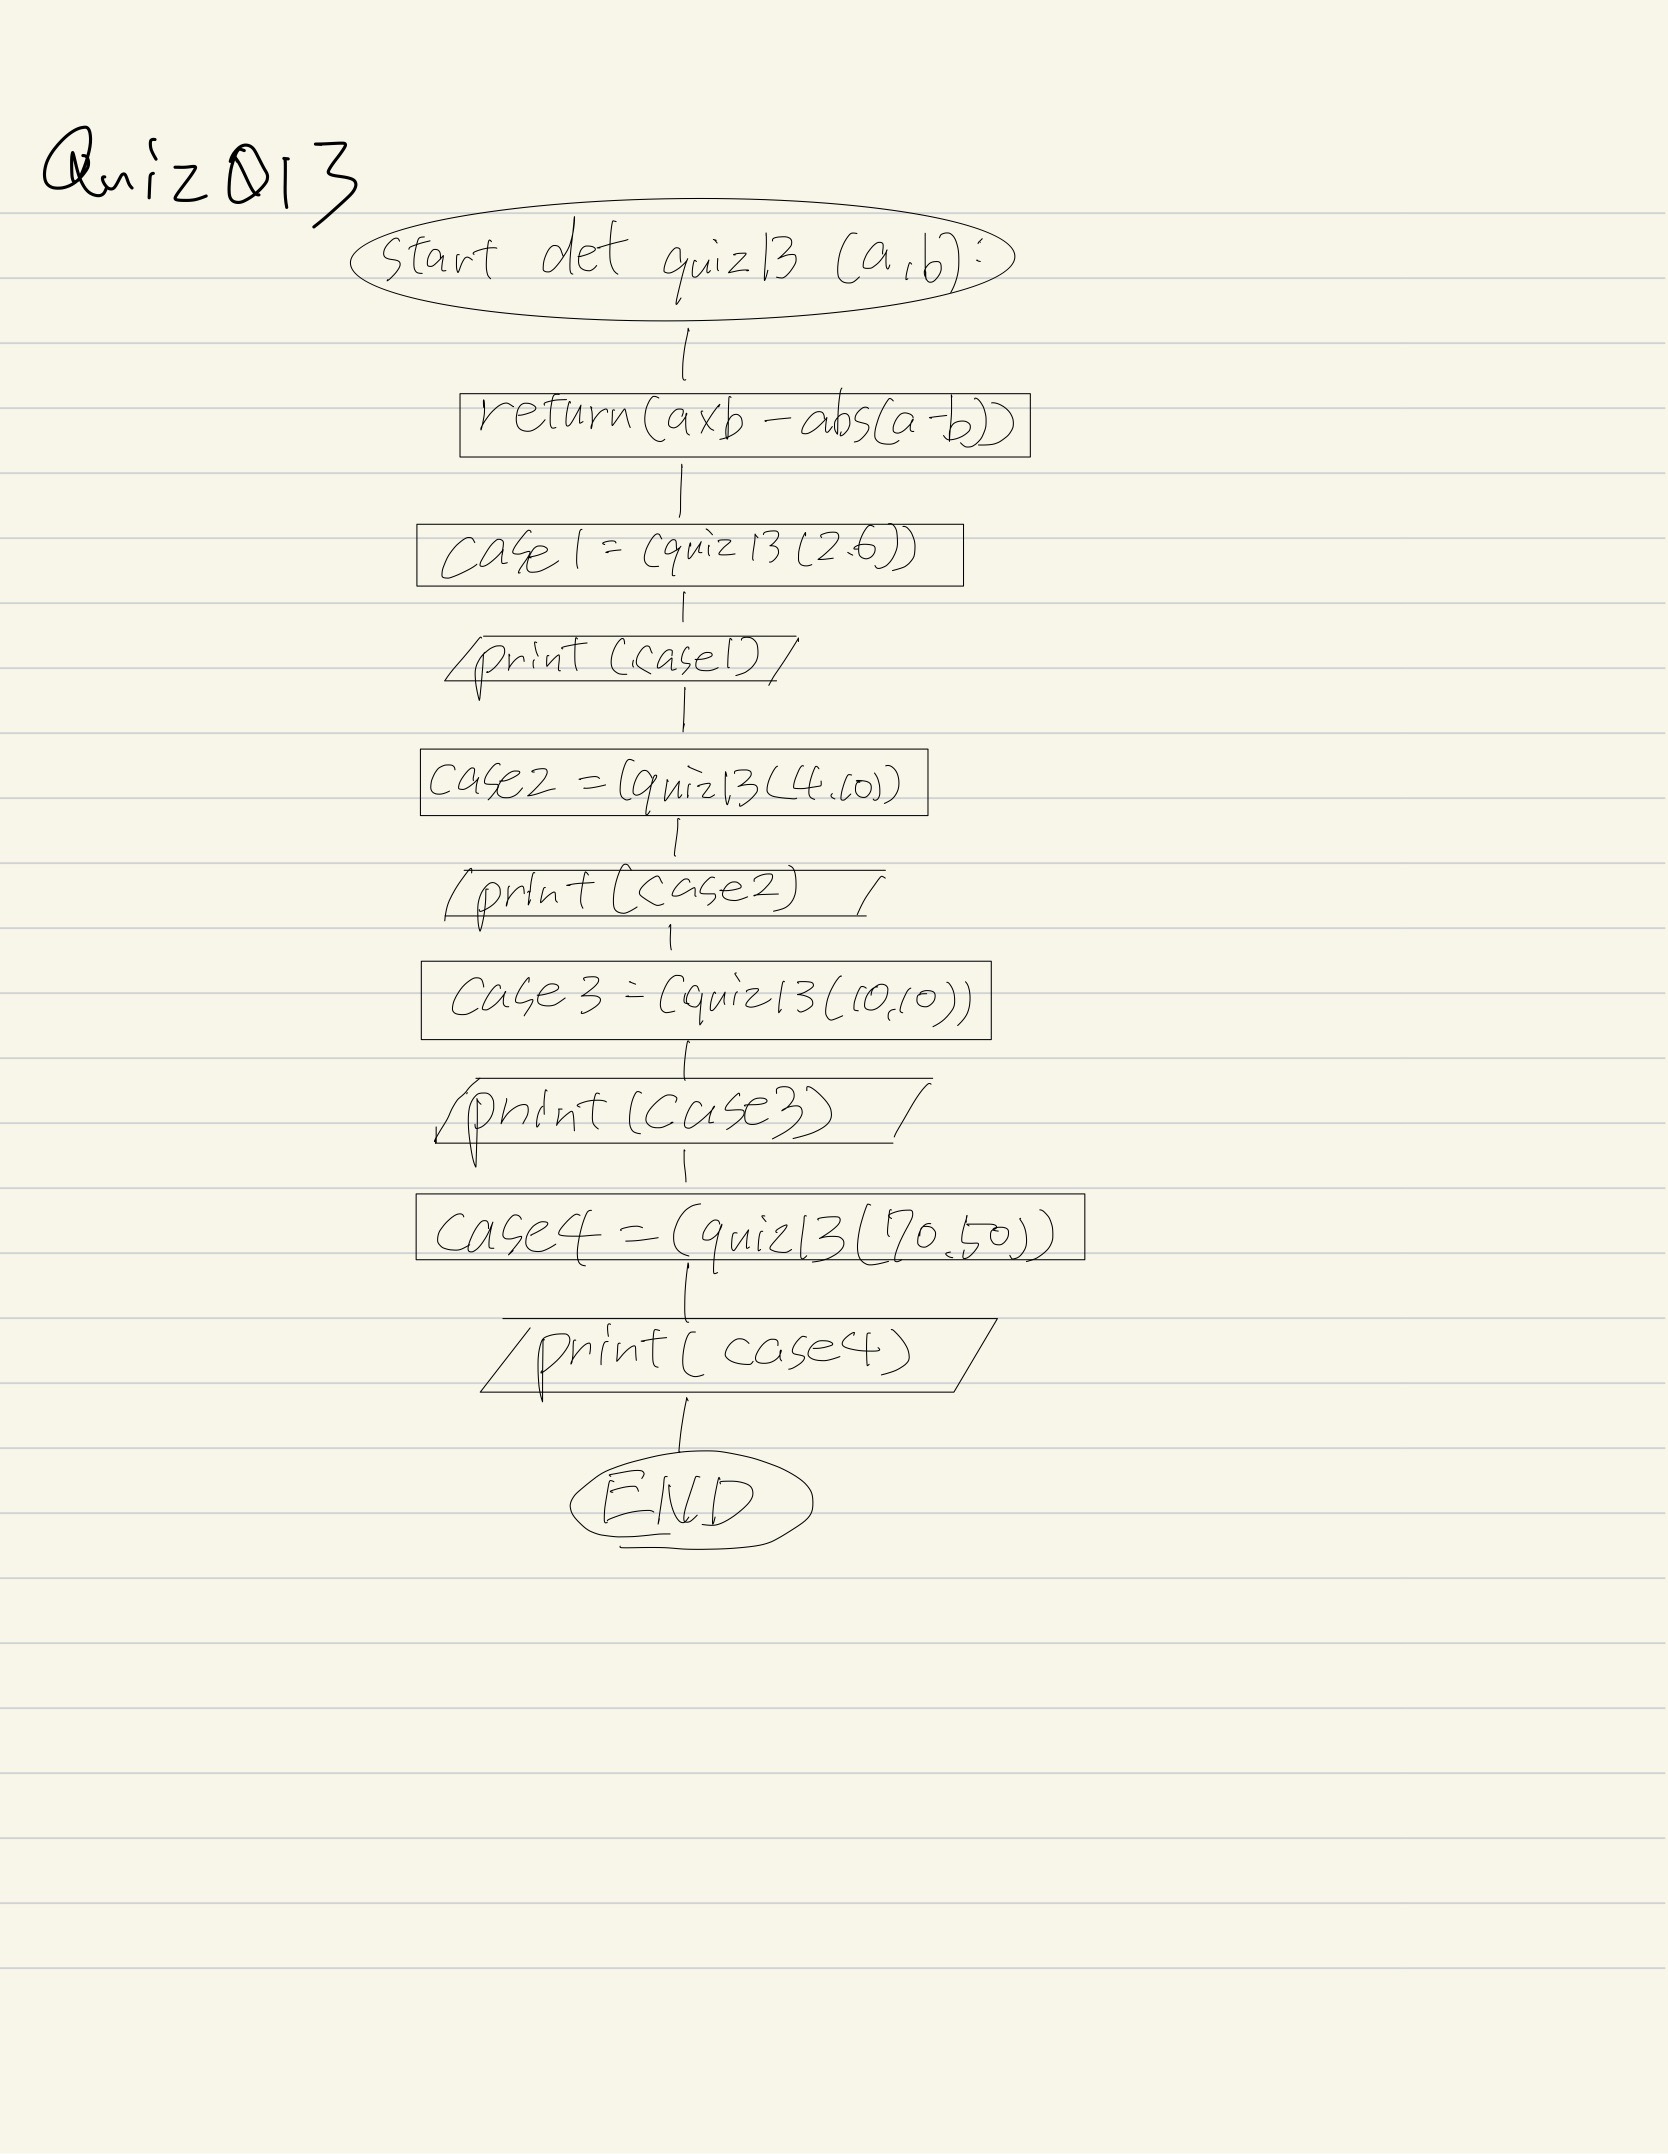 Quiz013
start def quiz13 (a,b):
return(axb-abs(a-b))
case1=(quiz13(2.6))
print(case1)
case2=(quiz13(4.10))
print(case2)
case3=(quiz13(10,10))
print(case3)
case4=(quiz13(70.50))
print(case4)
END